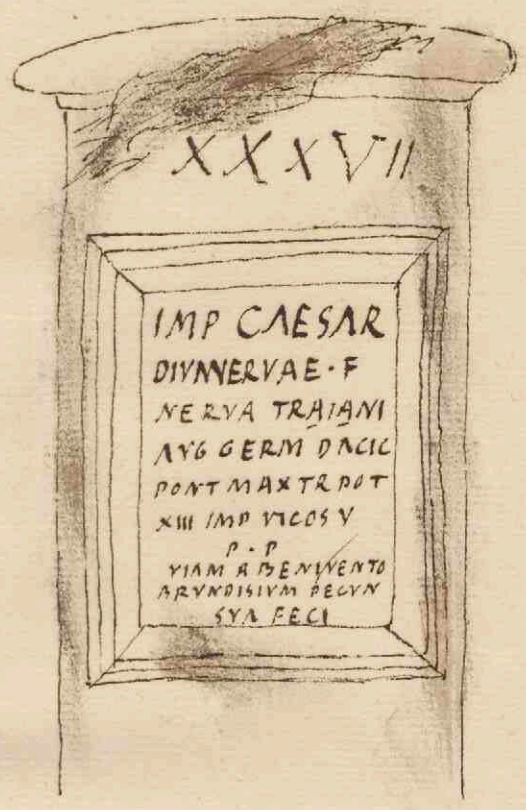 XXXVII
IMP CAESAR
DIVNNERVAE·F
NERVA TRAIANI
AVG GERM DACIC
PONT MAX TR POT
XIII IMP VICOS V
P·P
VIAM A BENIVENTO
BRVNDISIVM PECVN
SVA FECI